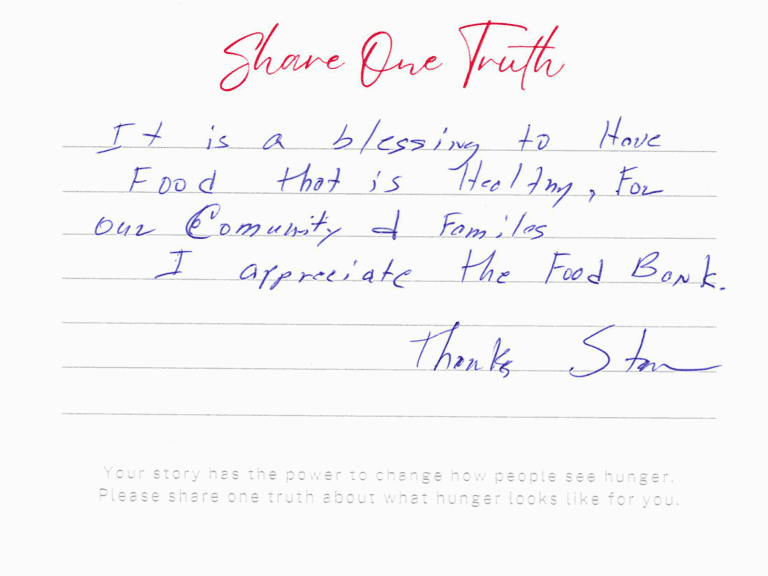 Share One Truth
It is a blessing to Have
Food that is Healthy, For
our Comunity & Familes
I appreciate the Food Bank.
Thanks Stan
Your story has the power to change how people see hunger.
Please share one truth about what hunger looks like for you.